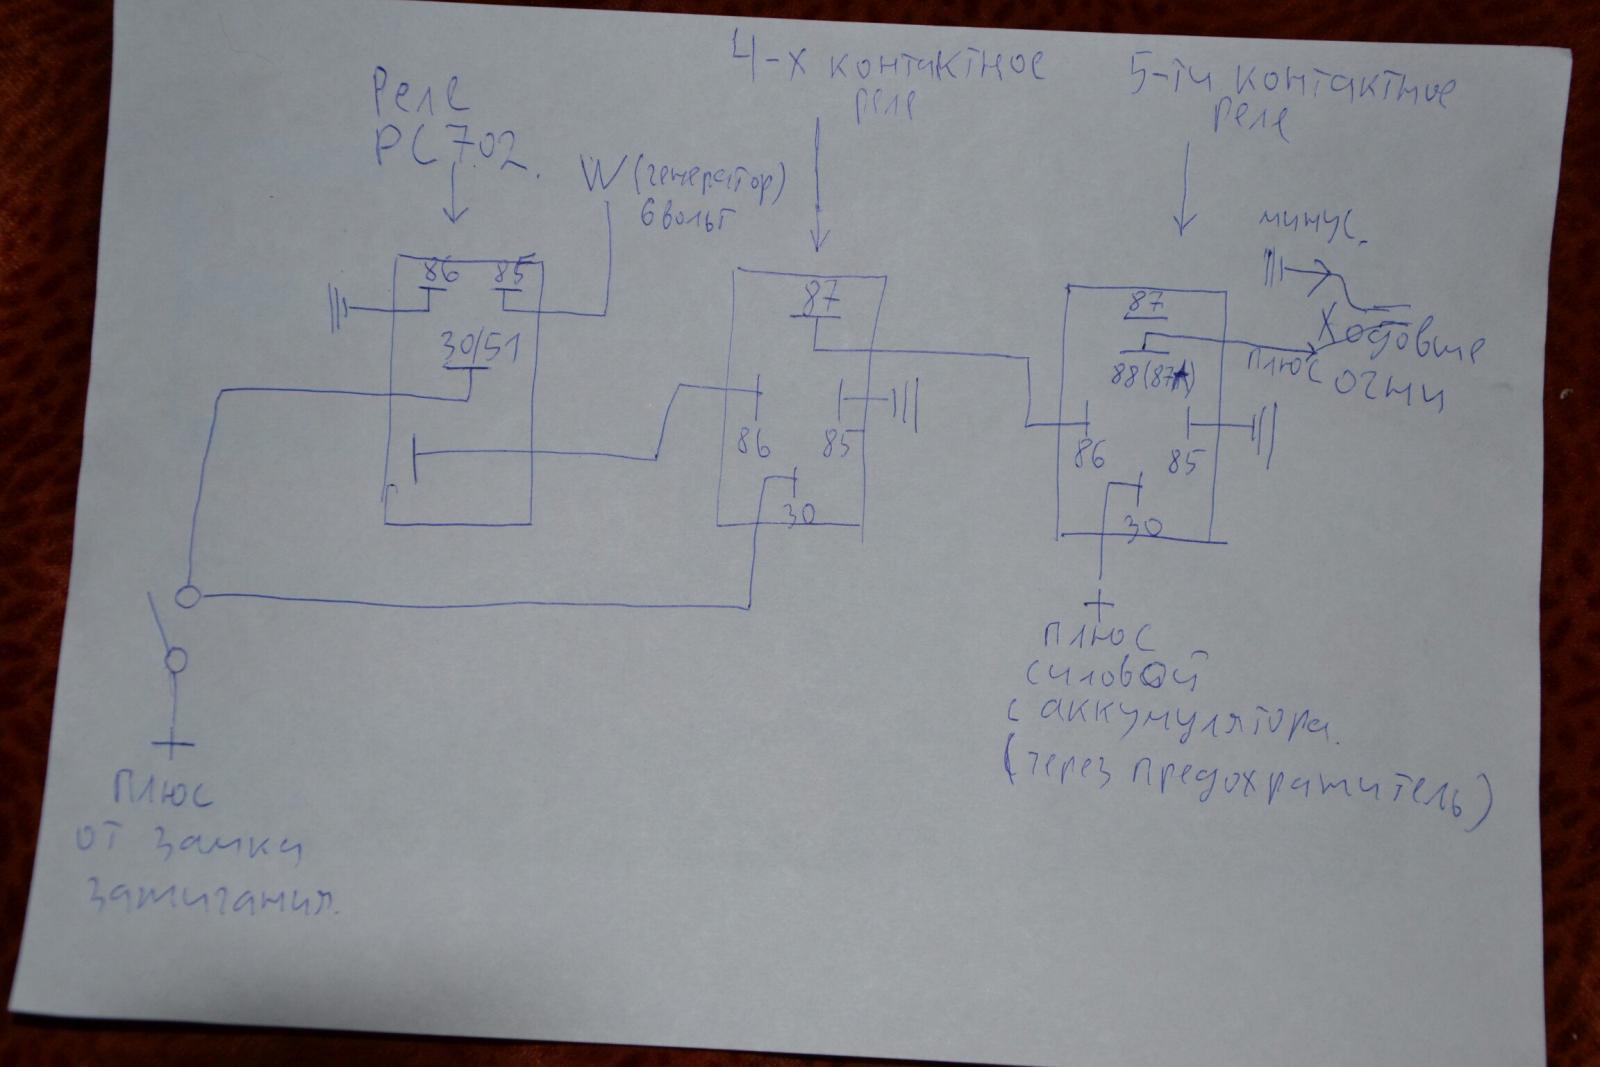 Реле
РС 702.
4-х контактное
реле
5-ти контактное
реле
W (генератор)
6 вольт
86 85
30/51
87
86 85
30
минус.
87
88 (87А)
плюс
Ходовые
огни
86 85
30
+
плюс
силовой
с аккумулятора.
(через предохранитель)
+
плюс
от замка
зажигания.